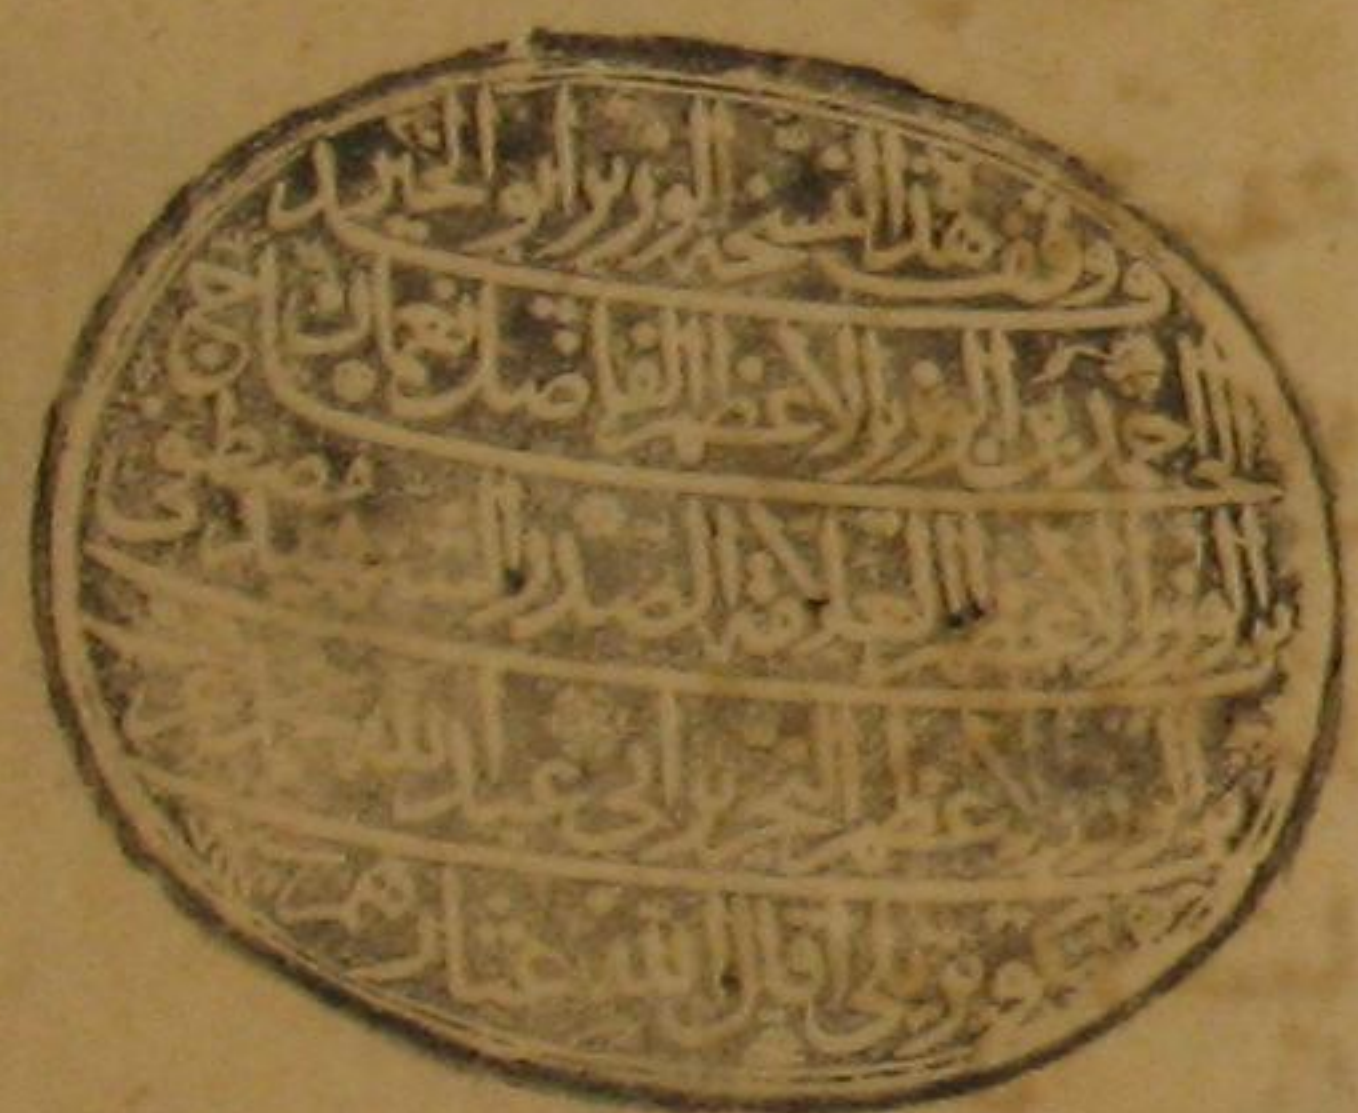 وقف هذا النسخة الوزير ابو الخير
الحاج احمد بن الوزير الاعظم الفاضل نعمان بن
الوزير الاعظم العلامة الصدر الشهيد مصطفى
بن الوزير الاعظم النحرير ابى عبد الله محمد
كوپريلى اقال الله عثارهم